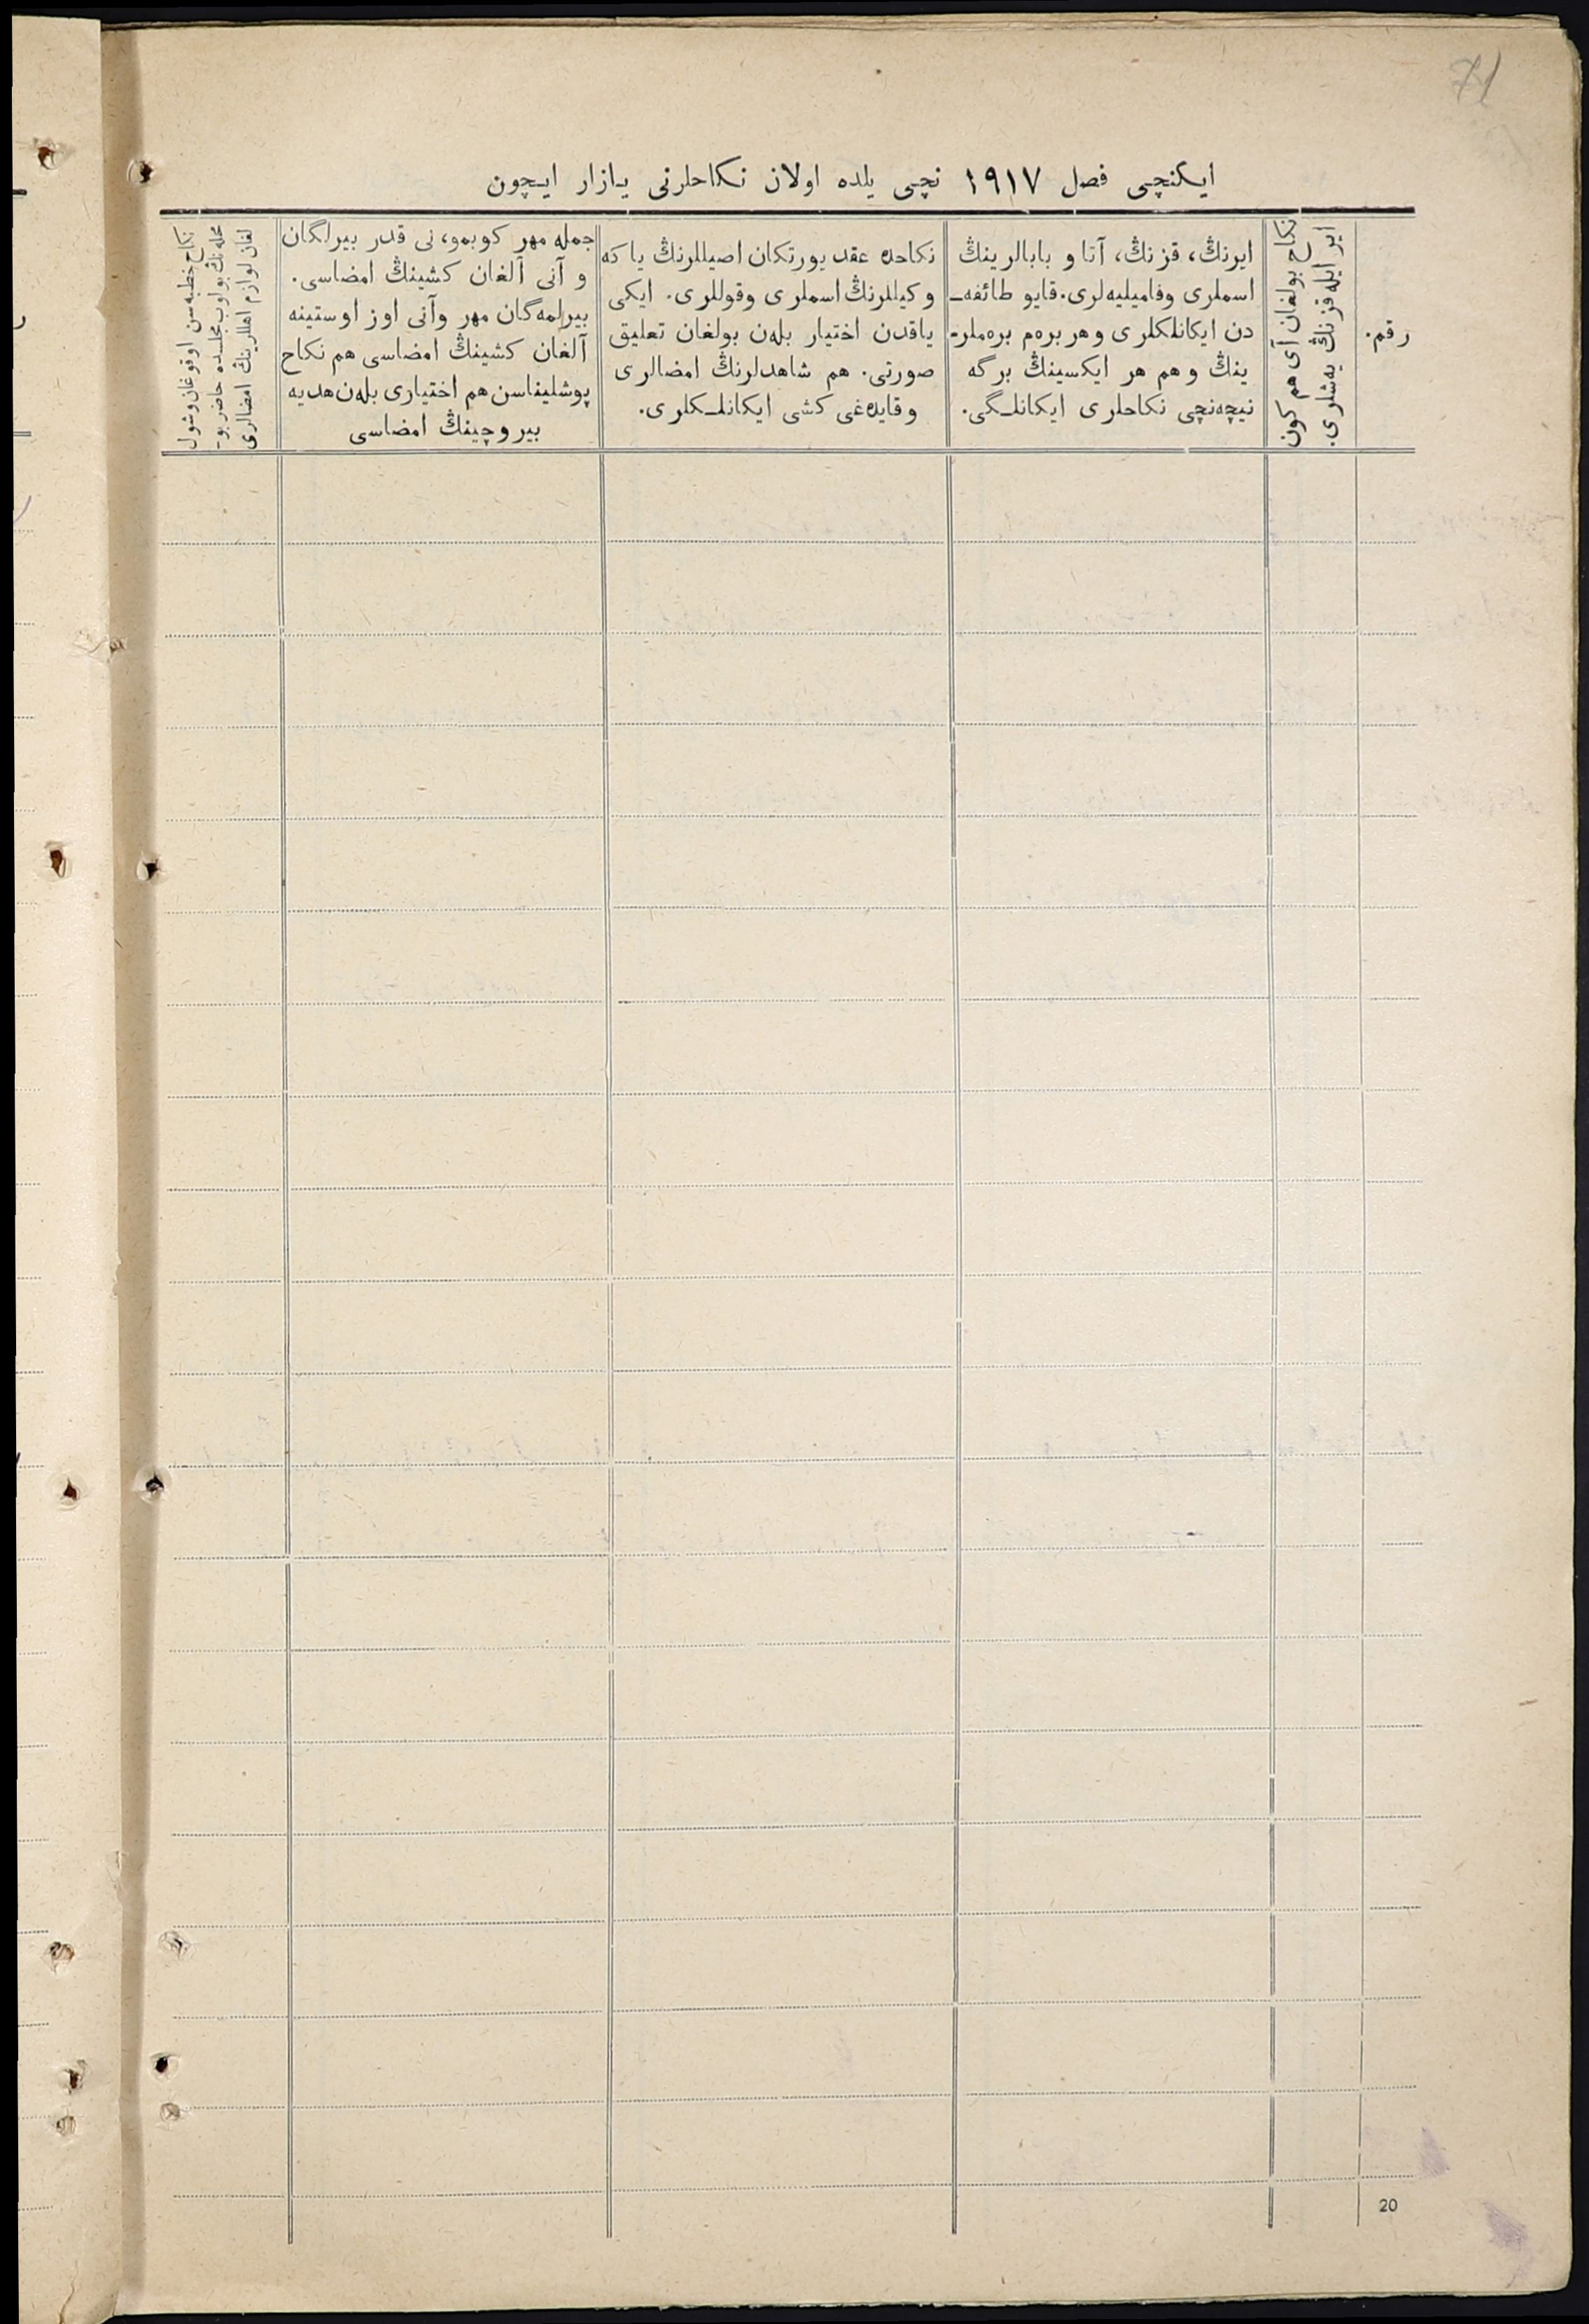 71
ایکنچی فصل ۱۹۱۷ نچی یلده اولان نکاحلرنی یازار ایچون
رقم.
نکاح بولغان آی هم کون
ایر ایله قزنڭ یه‌شلری.
ایرنڭ، قزنڭ، آتا و بابالرینڭ
اسملری وفامیلیه‌لری. قایو طائفه‌ـ
دن ایکانلکلری وهر بره‌م بره‌ملر-
ینڭ وهم هر ایکسینڭ برگه
نیچه‌نچی نکاحلری ایکانلـگی.
نکاحده عقد یورتکان اصیللرنڭ یا که
وکیللرنڭ اسملری وقوللری. ایکی
یاقدن اختیار بله‌ن بولغان تعلیق
صورتی. هم شاهدلرنڭ امضالری
وقایده‌غی کشی ایکانلـکلری.
جمله مهر کوبمو، نی قدر بیرلگان
و آنی آلغان کشینڭ امضاسی.
بیرلمه‌گان مهر وآنی اوز اوستینه
آلغان کشینڭ امضاسی هم نکاح
پوشلیناسن هم اختیاری بله‌ن هدیه
بیروچینڭ امضاسی
نکاح خطبه‌سن اوقوغان وشول
محله‌نڭ بولوب مجلسده حاضر بو-
لغان لوازم اهللرینڭ امضالری
20